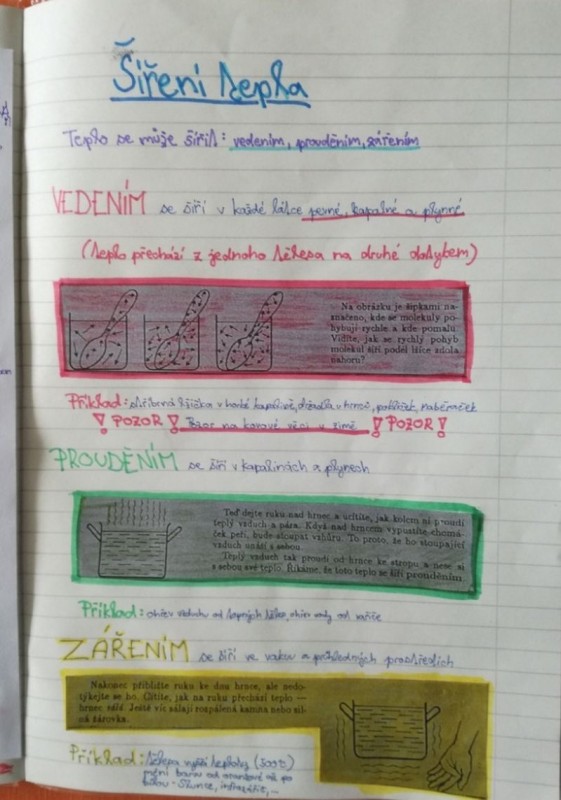 Šíření tepla
Teplo se může šířit: vedením, prouděním, zářením
VEDENÍM se šíří v každé látce pevné, kapalné a plynné
(teplo přechází z jednoho tělesa na druhé dotykem)
Na obrázku je šipkami na-
značeno, kde se molekuly po-
hybují rychle a kde pomalu.
Vidíte, jak se rychlý pohyb
molekul šíří podél lžíce zdola
nahoru?
Příklad: stříbrná lžička v horké kapalině, držadla u hrnců, naběračka
! POZOR ! Pozor na kovové věci v zimě ! POZOR !
PROUDĚNÍM se šíří v kapalinách a plynech
Teď dejte ruku nad hrnec a ucítíte, jak kolem ní proudí
teplý vzduch a pára. Když nad hrncem vypustíte chomá-
ček peří, bude stoupat vzhůru. To proto, že ho stoupající
vzduch unáší s sebou.
Teplý vzduch tak proudí od hrnce ke stropu a nese si
s sebou své teplo. Říkáme, že toto teplo se šíří prouděním.
Příklad: ohřev vzduchu od teplých těles, ohřev vody od vařiče
ZÁŘENÍM se šíří ve vakuu a průhledných prostředích
Nakonec přibližte ruku ke dnu hrnce, ale nedo-
týkejte se ho. Cítíte, jak na ruku přechází teplo —
hrnec září. Ještě víc sálají rozpálená kamna nebo sil-
ná žárovka.
Příklad: tělesa vyšší teploty (500°C)
mění barvu od oranžové až po
bílou - Slunce, infrazářič, ...